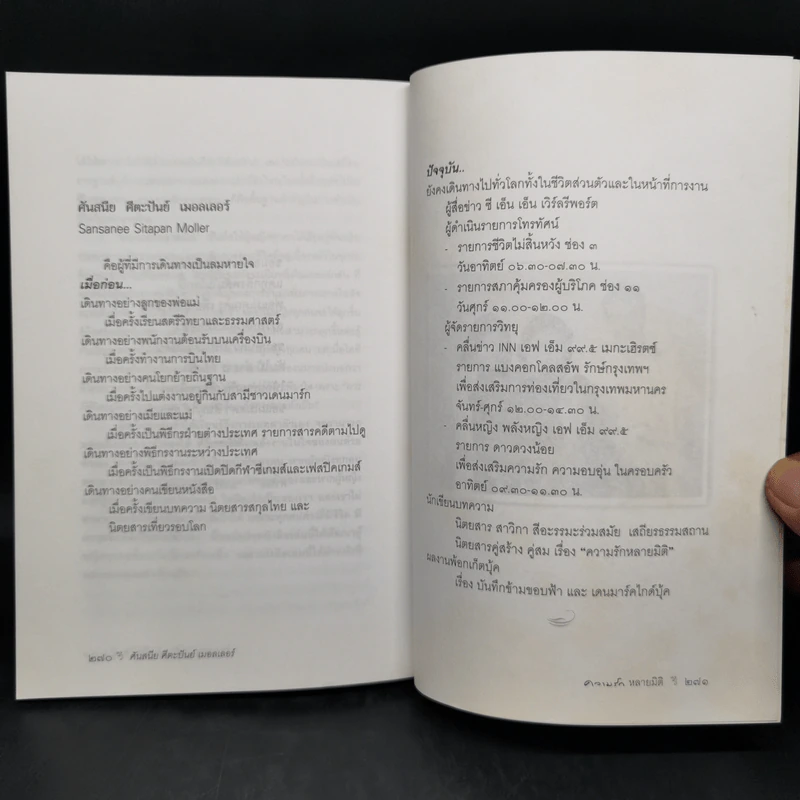 ศันสนีย ศีตะปันย์ เมอลเลอร์
Sansanee Sitapan Moller
คือผู้ที่มีการเดินทางเป็นลมหายใจ
เมื่อก่อน...
เดินทางอย่างลูกของพ่อแม่
เมื่อครั้งเรียนสตรีวิทยาและธรรมศาสตร์
เดินทางอย่างพนักงานต้อนรับบนเครื่องบิน
เมื่อครั้งทำงานการบินไทย
เดินทางอย่างคนโยกย้ายถิ่นฐาน
เมื่อครั้งไปแต่งงานอยู่กินกับสามีชาวเดนมาร์ก
เดินทางอย่างเมียและแม่
เมื่อครั้งเป็นพิธีกรฝ่ายต่างประเทศ รายการสารคดีตามไปดู
เดินทางอย่างพิธีกรงานระหว่างประเทศ
เมื่อครั้งเป็นพิธีกรงานเปิดปิดกีฬาซีเกมส์และเฟสปิคเกมส์
เดินทางอย่างคนเขียนหนังสือ
เมื่อครั้งเขียนบทความ นิตยสารสกุลไทย และ
นิตยสารเที่ยวรอบโลก
๒๗๐ ศันสนีย ศีตะปันย์ เมอลเลอร์
ปัจจุบัน..
ยังคงเดินทางไปทั่วโลกทั้งในชีวิตส่วนตัวและในหน้าที่การงาน
ผู้สื่อข่าว ซี เอ็น เอ็น เวิร์ลรีพอร์ต
ผู้ดำเนินรายการโทรทัศน์
- รายการชีวิตไม่สิ้นหวัง ช่อง ๓
วันอาทิตย์ ๐๖.๓๐-๐๗.๓๐ น.
- รายการสภาคุ้มครองผู้บริโภค ช่อง ๑๑
วันศุกร์ ๑๑.๐๐-๑๒.๐๐ น.
ผู้จัดรายการวิทยุ
- คลื่นข่าว INN เอฟ เอ็ม ๙๙.๕ เมกะเฮิรตซ์
รายการ แบงคอกโคลสอัพ รักษ์กรุงเทพฯ
เพื่อส่งเสริมการท่องเที่ยวในกรุงเทพมหานคร
จันทร์-ศุกร์ ๑๒.๐๐-๑๔.๓๐ น.
- คลื่นหญิง พลังหญิง เอฟ เอ็ม ๙๙.๕
รายการ ดาวดวงน้อย
เพื่อส่งเสริมความรัก ความอบอุ่น ในครอบครัว
อาทิตย์ ๐๙.๓๐-๑๑.๓๐ น.
นักเขียนบทความ
นิตยสาร สาวิกา สื่อธรรมะร่วมสมัย เสถียรธรรมสถาน
นิตยสารคู่สร้าง คู่สม เรื่อง "ความรักหลายมิติ"
ผลงานพ้อกเก็ตบุ้ค
เรื่อง บันทึกข้ามขอบฟ้า และ เดนมาร์คไกด์บุ้ค
ความรัก หลายมิติ ๒๗๑